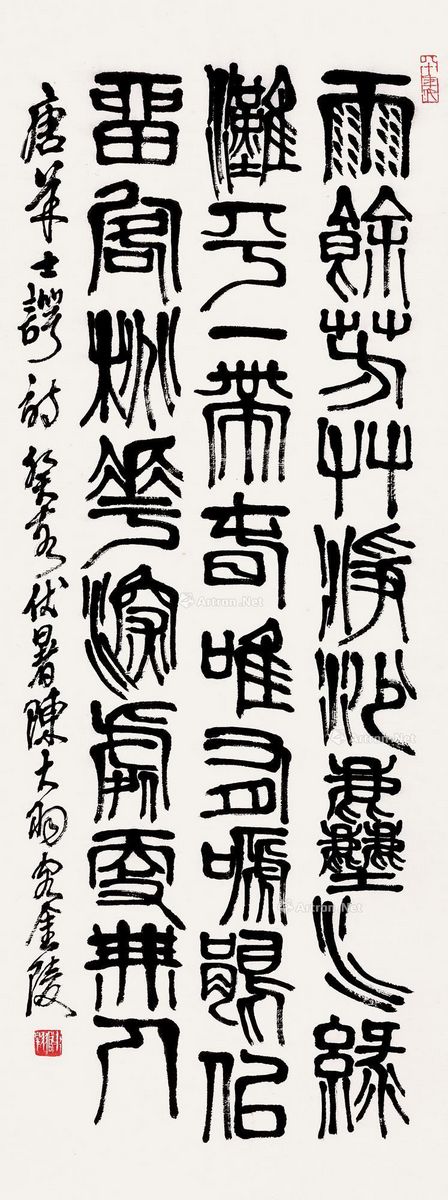 雨餘芳艸淨沙塵水綠
灘平一帶春唯有嗁鵑佀
留客桃花深處更無人
唐羊士諤詩 癸亥伏暑陳大羽客金陵
Artron.Net
Artron.Net
Artron.Net